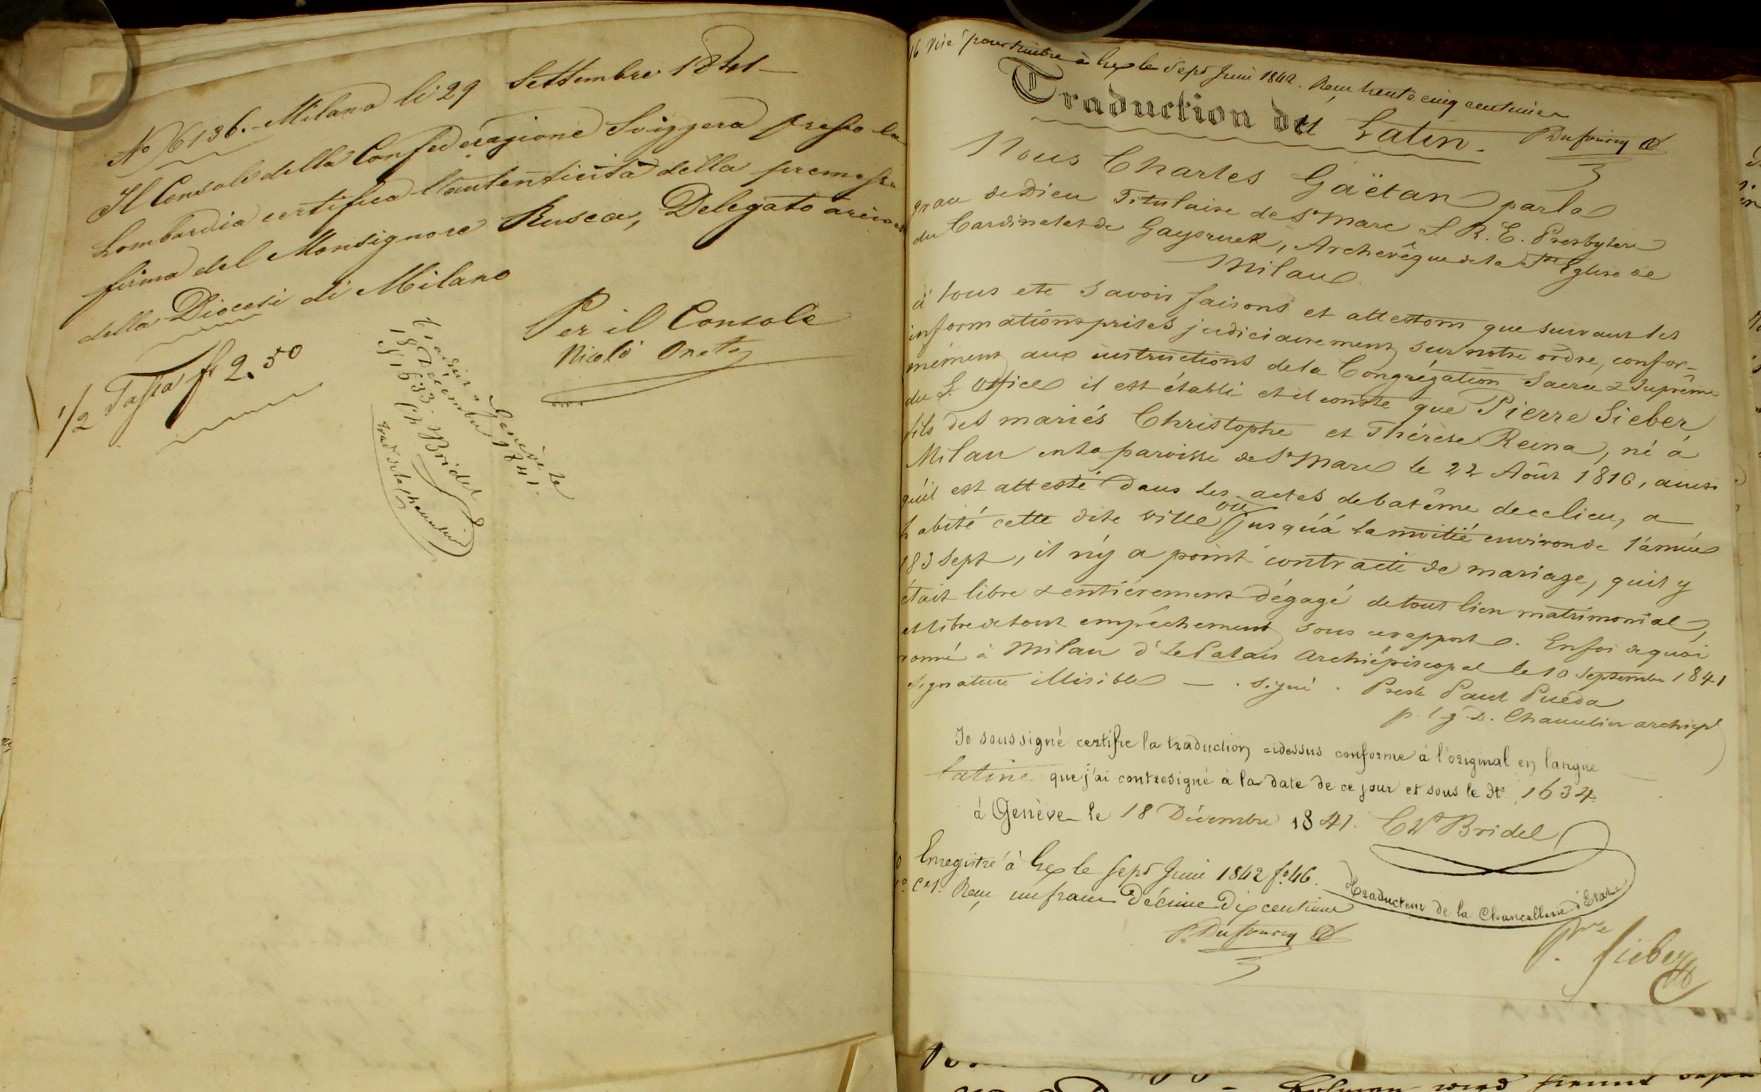 No 6136. Milano li 29 Settembre 1841
Il Console della Confederazione Svizzera presso la
Lombardia certifica l'autenticità della premessa
firma del Monsignore Rusca, Delegato arcives
della Diocesi di Milano
Per il Console
Nicolò Oneto
1/2 Tassa f 2.50
à Genève le
18 Décembre 1841.
No 1633. Ch Bridel
trad. de la Chancellerie
Visé pour timbre à Gex le Sept Juin 1842. Reçu trente cinq centimes
P. Dufourcq
Traduction du Latin.
Nous Charles Gaëtan par la
grace de Dieu Titulaire de St Marc S. R. E. Presbytere
du Cardinalat de Gaysruck, Archevêque de la Ste Eglise de
Milan
à tous ete savoir faisons et attestons que suivant les
informations prises judiciairement sur notre ordre, confor-
mément aux instructions de la Congrégation Sacrée & Suprême
du St Office il est établi et il conste que Pierre Sieber
fils des mariés Christophe et Thérèse Reina, né à
Milan en la paroisse de St Marc le 22 Août 1816, ainsi
qu'il est attesté dans les actes de batême de ce lieu, a
habité cette dite ville ou jusqu'à la moitié environ de l'année
183 sept, il n'y a point contracté de mariage, qu'il y
était libre & entiérement dégagé de tout lien matrimonial,
et libre de tout empêchement sous ce rapport. En foi de quoi
donné à Milan d Le Palais Archiépiscopal le 10 Septembre 1841
signature illisible — . signé . Prest Paul Pueda
p. l g d. Chancelier archiepl
Je soussigné certifie la traduction cidessus conforme à l'original en langue
latine que j'ai contresigné à la date de ce jour et sous le No 1634
à Genève le 18 Décembre 1841. Ch Bridel
Traducteur de la Chancellerie d'Etat
Enregistré à Gex le Sept Juin 1842 fo 46.
Co 1. Reçu un franc Décime dix centimes
P. Dufourcq
P. Sieber